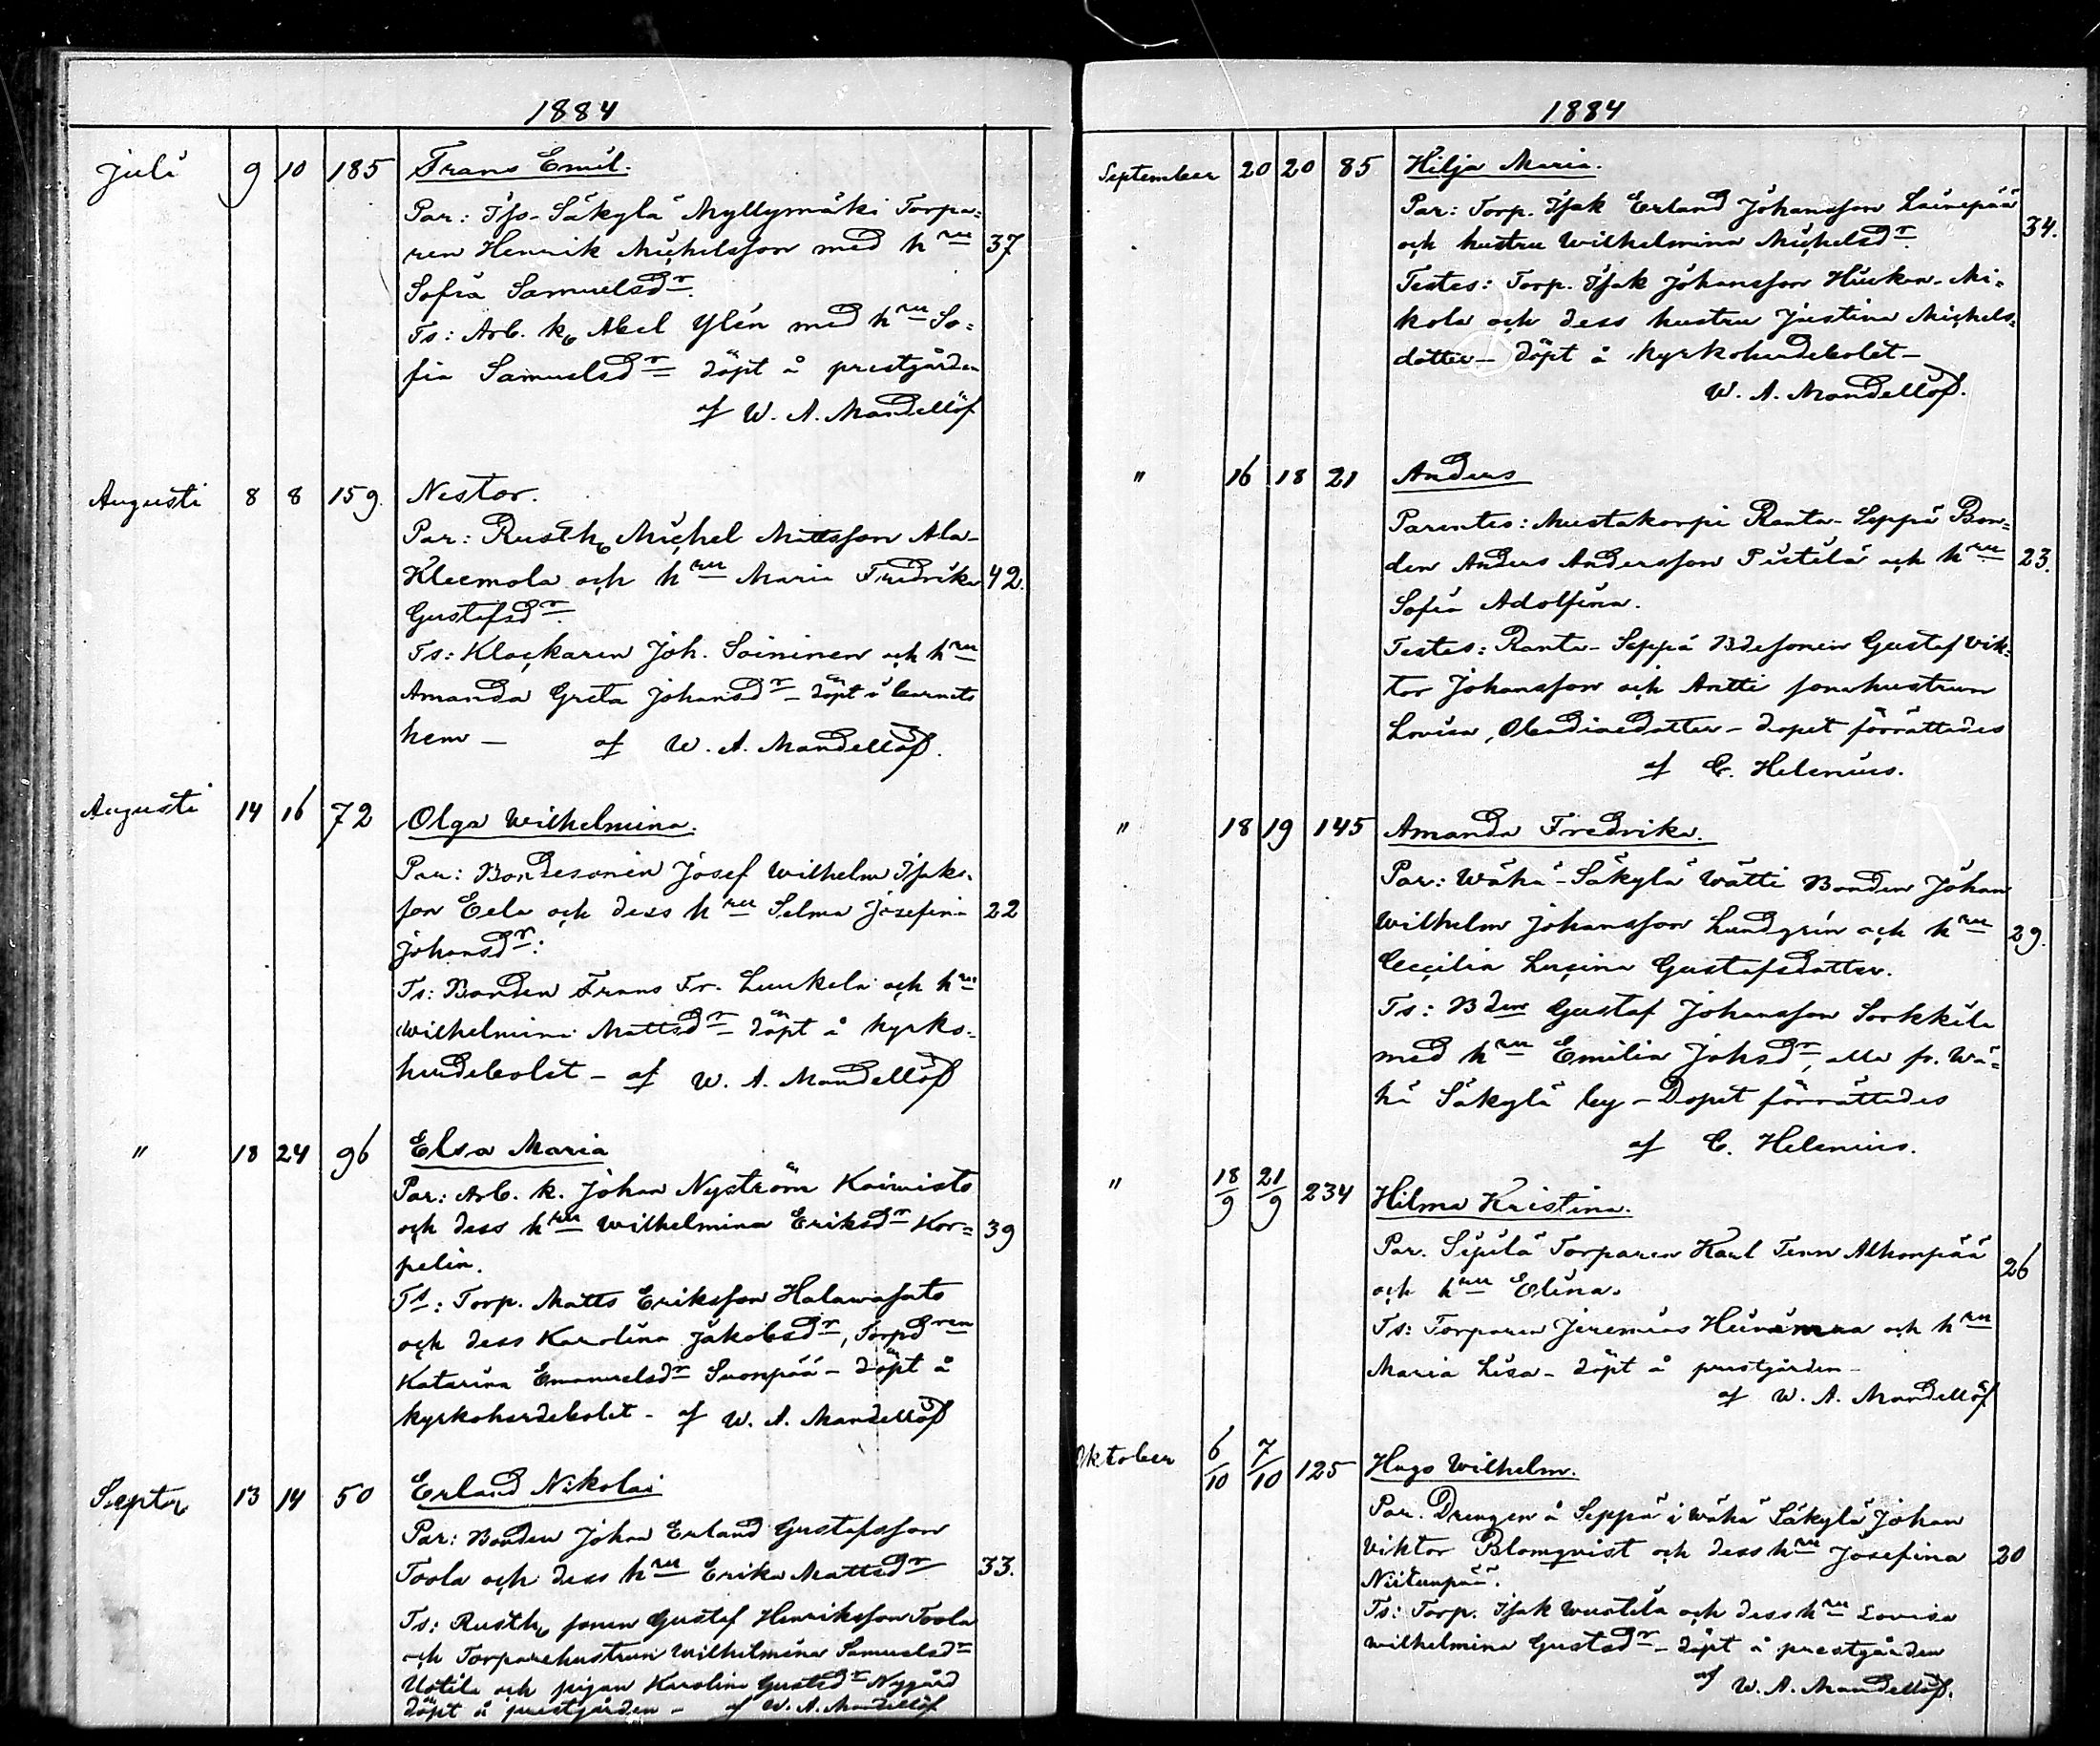 1884
Juli 9 10 185 Frans Emil.
Par: Iso-Säkylä Myllymäki Torpa=
ren Henrik Michelsson med hru 37
Sofia Samuelsdr.
Ts: Arb. k. Abel Ylén med hru So=
fia Samuelsdr döpt å prestgården
af W. A. Mandellöf
Augusti 8 8 159. Nestor.
Par: Rusth. Michel Mattsson Ala-
Kleemola och hru Maria Fredrika 42.
Gustafsdr.
Ts: Klockaren Joh. Soininen och hru
Amanda Greta Johansdr – döpt i barnets
hem – af W. A. Mandellöf.
Augusti 14 16 72 Olga Wilhelmina.
Par: Bondesonen Josef Wilhelm Isaks-
son Eela och dess hru Selma Josefina 22
Johansdr.
Ts: Bonden Frans Fr. Luukela och hru
Wilhelmina Mattsdr – döpt å kyrko-
herdebolet – af W. A. Mandellöf
" 18 24 96 Elsa Maria
Par: Arb. k. Johan Nyström Koiwisto
och dess hru Wilhelmina Eriksdr Kor= 39
pelin.
Ts: Torp. Matts Eriksson Halawasato
och dess Karolina Jakobsdr, Torpdren
Katarina Emanuelsdr Suonpää – döpt å
kyrkoherdebolet – af W. A. Mandellöf
Septr 13 14 50 Erland Nikolai
Par: Bonden Johan Erland Gustafsson
Toola och dess hru Erika Mattsdr 33.
Ts: Rusth. sonen Gustaf Henriksson Toola
och Torparehustrun Wilhelmina Samuelsdr
Uotila och pigan Karolina Gustsdr Nygård
döpt å prestgården – af W. A. Mandellöf
1884
September 20 20 85 Hilja Maria.
Par: Torp. Isak Erland Johansson Lainepää
och hustru Wilhelmina Michelsdr. 34.
Testes: Torp. Isak Johansson Mi=
kola och dess hustru Justina Michels=
dotter – döpt å kyrkoherdebolet –
W. A. Mandellöf.
" 16 18 21 Anders
Parentes: Mustakorpi Ranta-Seppä Bon=
den Anders Andersson Pietilä och hru 23.
Sofia Adolfina.
Testes: Ranta-Seppä Bdesonen Gustaf Vik=
tor Johansson och Antti sonahustrun
Lovisa, Obadiaedotter – dopet förrättades
af C. Helenius.
" 18 19 145 Amanda Fredrika.
Par: Wähä-Säkylä Wätti Bonden Johan
Wilhelm Johansson Lundgrén och hru 29.
Cecilia Lucina Gustafsdotter.
Ts: Bden Gustaf Johansson Sorkkila
med hru Emilia Johsdr, alla fr. Wä=
hä Säkylä by – Dopet förrättades
af C. Helenius.
" 18/9 21/9 234 Hilma Kristina.
Par. Sipilä Torparen Karl Tenn Alhonpää 26
och hru Elina.
Ts: Torparen Jeremias och hru
Maria Lisa – döpt å prestgården –
af W. A. Mandellöf
Oktober 6/10 7/10 125 Hugo Wilhelm.
Par. Drengen å Seppä i Wähä Säkylä Johan
Viktor Blomqvist och dess hru Josefina 20
Niitunpää.
Ts: Torp. Isak Wuotila och dess hru Lovisa
Wilhelmina Gustsdr – döpt å prestgården
af W. A. Mandellöf.